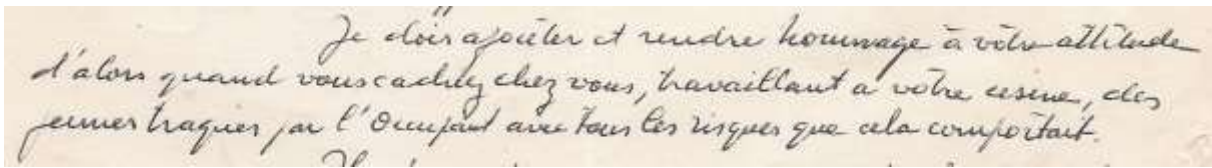 Je dois ajouter et rendre hommage à vôtre attitude
d'alors quand vous cachiez chez vous, travaillant a vôtre usine, des
jeunes traqués par l'Occupant avec tous les risques que cela comportait.